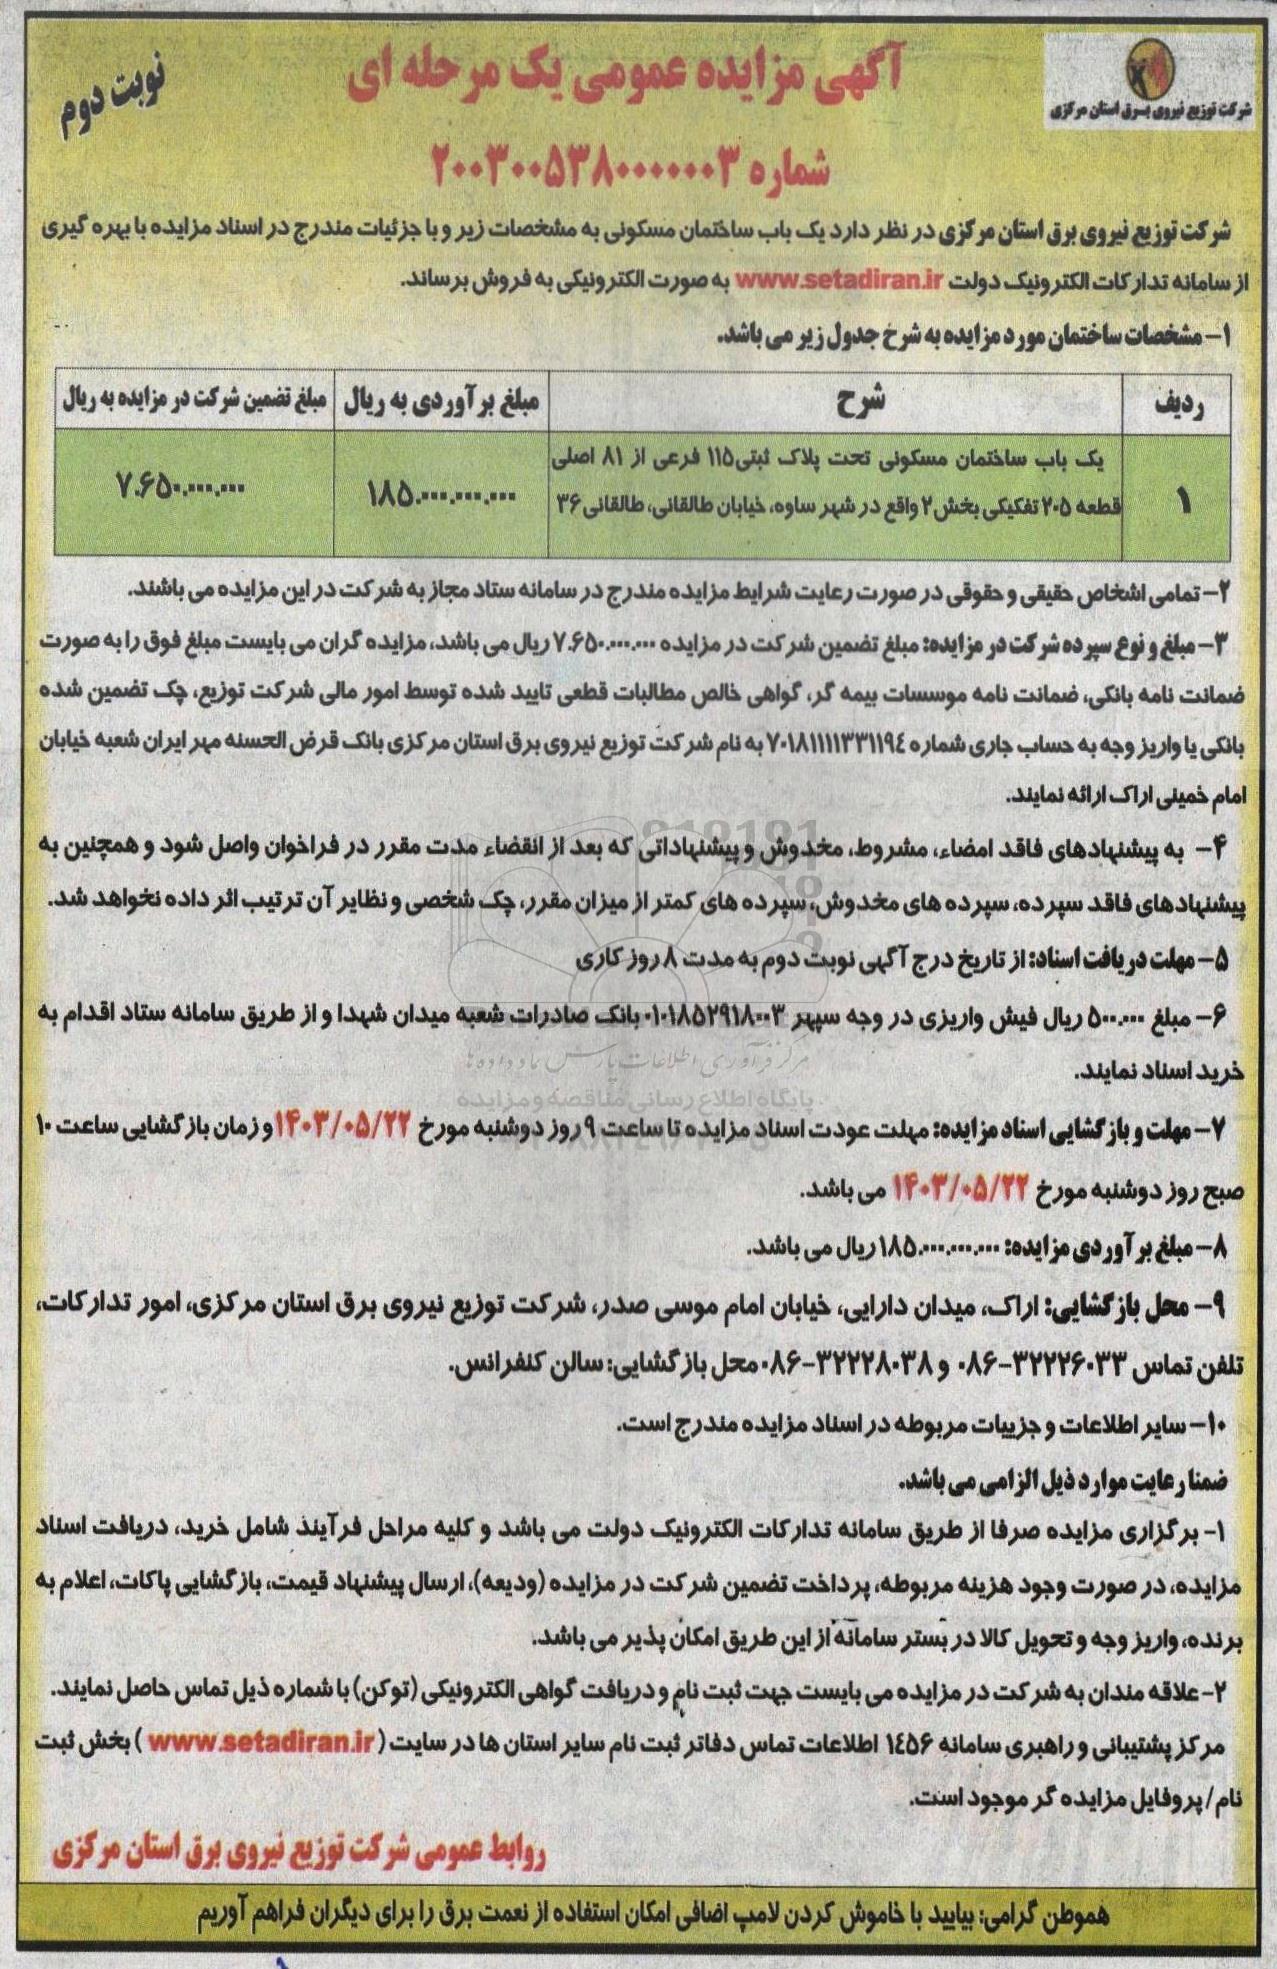 شرکت توزیع نیروی برق استان مرکزی
آگهی مزایده عمومی یک مرحله ای
نوبت دوم
شماره ۲۰۰۳۰۰۵۳۸۰۰۰۰۰۰۳
شرکت توزیع نیروی برق استان مرکزی در نظر دارد یک باب ساختمان مسکونی به مشخصات زیر و با جزئیات مندرج در اسناد مزایده با بهره گیری
از سامانه تدارکات الکترونیک دولت www.setadiran.ir به صورت الکترونیکی به فروش برساند.
۱- مشخصات ساختمان مورد مزایده به شرح جدول زیر می باشد.
ردیف شرح مبلغ برآوردی به ریال مبلغ تضمین شرکت در مزایده به ریال
یک باب ساختمان مسکونی تحت پلاک ثبتی۱۱۵ فرعی از ۸۱ اصلی
۱ قطعه ۲۰۵ تفکیکی بخش۲ واقع در شهر ساوه، خیابان طالقانی، طالقانی۳۶ ۱۸۵.۰۰۰.۰۰۰.۰۰۰ ۷.۶۵۰.۰۰۰.۰۰۰
۲- تمامی اشخاص حقیقی و حقوقی در صورت رعایت شرایط مزایده مندرج در سامانه ستاد مجاز به شرکت در این مزایده می باشند.
۳- مبلغ و نوع سپرده شرکت در مزایده: مبلغ تضمین شرکت در مزایده ۷.۶۵۰.۰۰۰.۰۰۰ ریال می باشد، مزایده گران می بایست مبلغ فوق را به صورت
ضمانت نامه بانکی، ضمانت نامه موسسات بیمه گر، گواهی خالص مطالبات قطعی تایید شده توسط امور مالی شرکت توزیع، چک تضمین شده
بانکی یا واریز وجه به حساب جاری شماره ۷۰۱۸۱۱۱۱۳۳۱۱۹۴ به نام شرکت توزیع نیروی برق استان مرکزی بانک قرض الحسنه مهر ایران شعبه خیابان
امام خمینی اراک ارائه نمایند.
۴- به پیشنهادهای فاقد امضاء، مشروط، مخدوش و پیشنهاداتی که بعد از انقضاء مدت مقرر در فراخوان واصل شود و همچنین به
پیشنهادهای فاقد سپرده، سپرده های مخدوش، سپرده های کمتر از میزان مقرر، چک شخصی و نظایر آن ترتیب اثر داده نخواهد شد.
۵- مهلت دریافت اسناد: از تاریخ درج آگهی نوبت دوم به مدت ۸ روز کاری
۶- مبلغ ۵۰۰.۰۰۰ ریال فیش واریزی در وجه سپهر ۰۱۰۱۸۵۲۹۱۸۰۰۳ بانک صادرات شعبه میدان شهدا و از طریق سامانه ستاد اقدام به
مرکز فرآوری اطلاعات پارس نماد داده ها
خرید اسناد نمایند.
پایگاه اطلاع رسانی مناقصه و مزایده
۷- مهلت و بازگشایی اسناد مزایده: مهلت عودت اسناد مزایده تا ساعت ۹ روز دوشنبه مورخ ۱۴۰۳/۰۵/۲۲ و زمان بازگشایی ساعت ۱۰
صبح روز دوشنبه مورخ ۱۴۰۳/۰۵/۲۲ می باشد.
۸- مبلغ برآوردی مزایده: ۱۸۵.۰۰۰.۰۰۰.۰۰۰ ریال می باشد.
۹- محل بازگشایی: اراک، میدان دارایی، خیابان امام موسی صدر، شرکت توزیع نیروی برق استان مرکزی، امور تدارکات،
تلفن تماس ۳۲۲۲۶۰۳۳-۰۸۶ و ۳۲۲۲۸۰۳۸-۰۸۶ محل بازگشایی: سالن کنفرانس.
۱۰- سایر اطلاعات و جزییات مربوطه در اسناد مزایده مندرج است.
ضمنا رعایت موارد ذیل الزامی می باشد.
۱- برگزاری مزایده صرفا از طریق سامانه تدارکات الکترونیک دولت می باشد و کلیه مراحل فرآیند شامل خرید، دریافت اسناد
مزایده، در صورت وجود هزینه مربوطه، پرداخت تضمین شرکت در مزایده (ودیعه)، ارسال پیشنهاد قیمت، بازگشایی پاکات، اعلام به
برنده، واریز وجه و تحویل کالا در بستر سامانه از این طریق امکان پذیر می باشد.
۲- علاقه مندان به شرکت در مزایده می بایست جهت ثبت نام و دریافت گواهی الکترونیکی (توکن) با شماره ذیل تماس حاصل نمایند.
مرکز پشتیبانی و راهبری سامانه ۱۴۵۶ اطلاعات تماس دفاتر ثبت نام سایر استان ها در سایت (www.setadiran.ir) بخش ثبت
نام/ پروفایل مزایده گر موجود است.
روابط عمومی شرکت توزیع نیروی برق استان مرکزی
هموطن گرامی: بیایید با خاموش کردن لامپ اضافی امکان استفاده از نعمت برق را برای دیگران فراهم آوریم